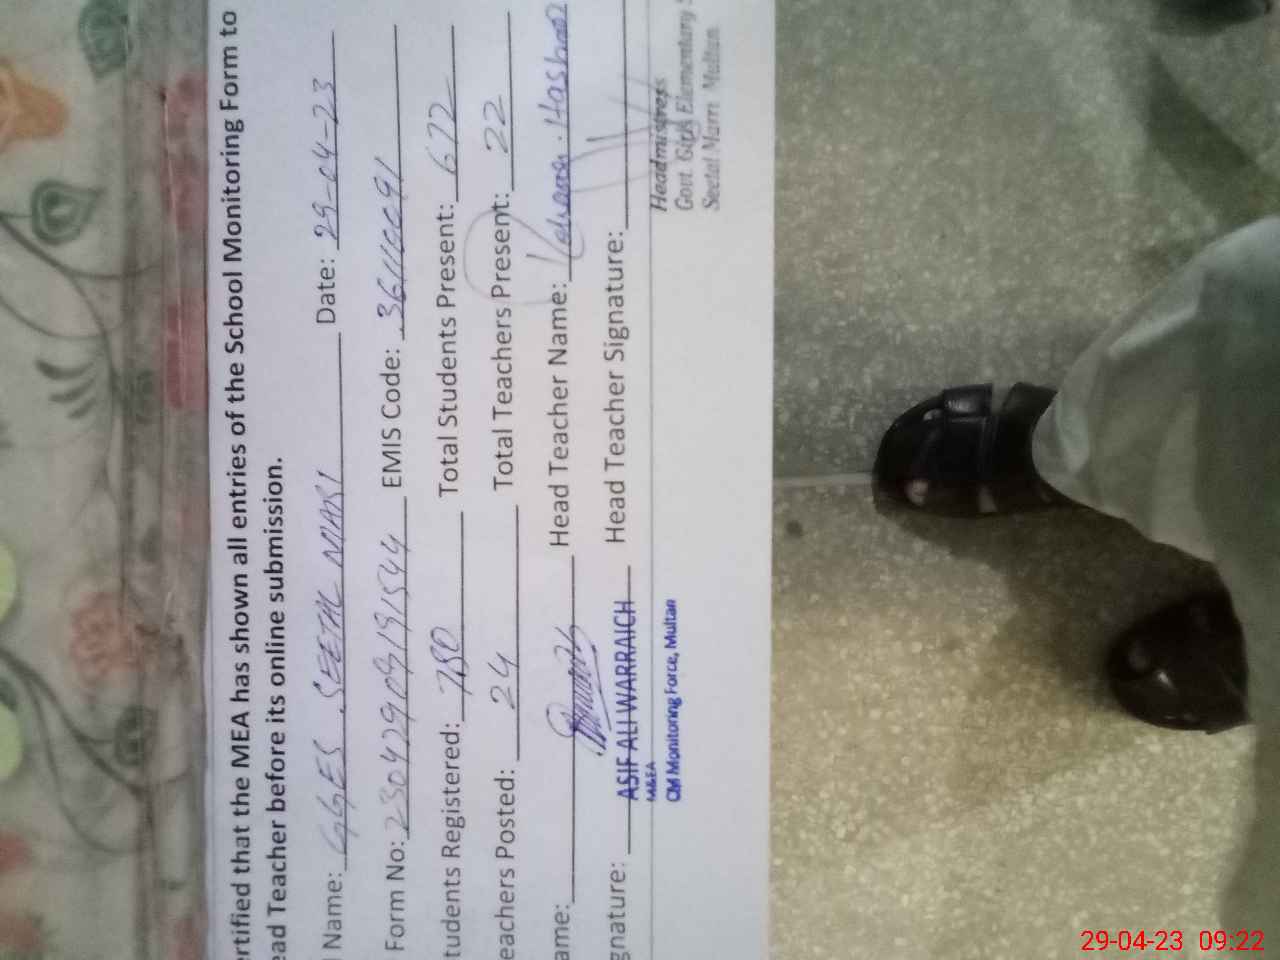 ertified that the MEA has shown all entries of the School Monitoring Form to
ead Teacher before its online submission.
l Name: GGES SEETAL MARI Date: 29-04-23
Form No: 23042909191544 EMIS Code: 36110091
tudents Registered: 780 Total Students Present: 672
eachers Posted: 24 Total Teachers Present: 22
ame: Head Teacher Name: Hashmi
gnature: ASIF ALI WARRAICH Head Teacher Signature:
M&EA
CM Monitoring Force, Multan
Headmistress
Govt. Girls Elementary S
Seetal Marri Multan
29-04-23 09:22